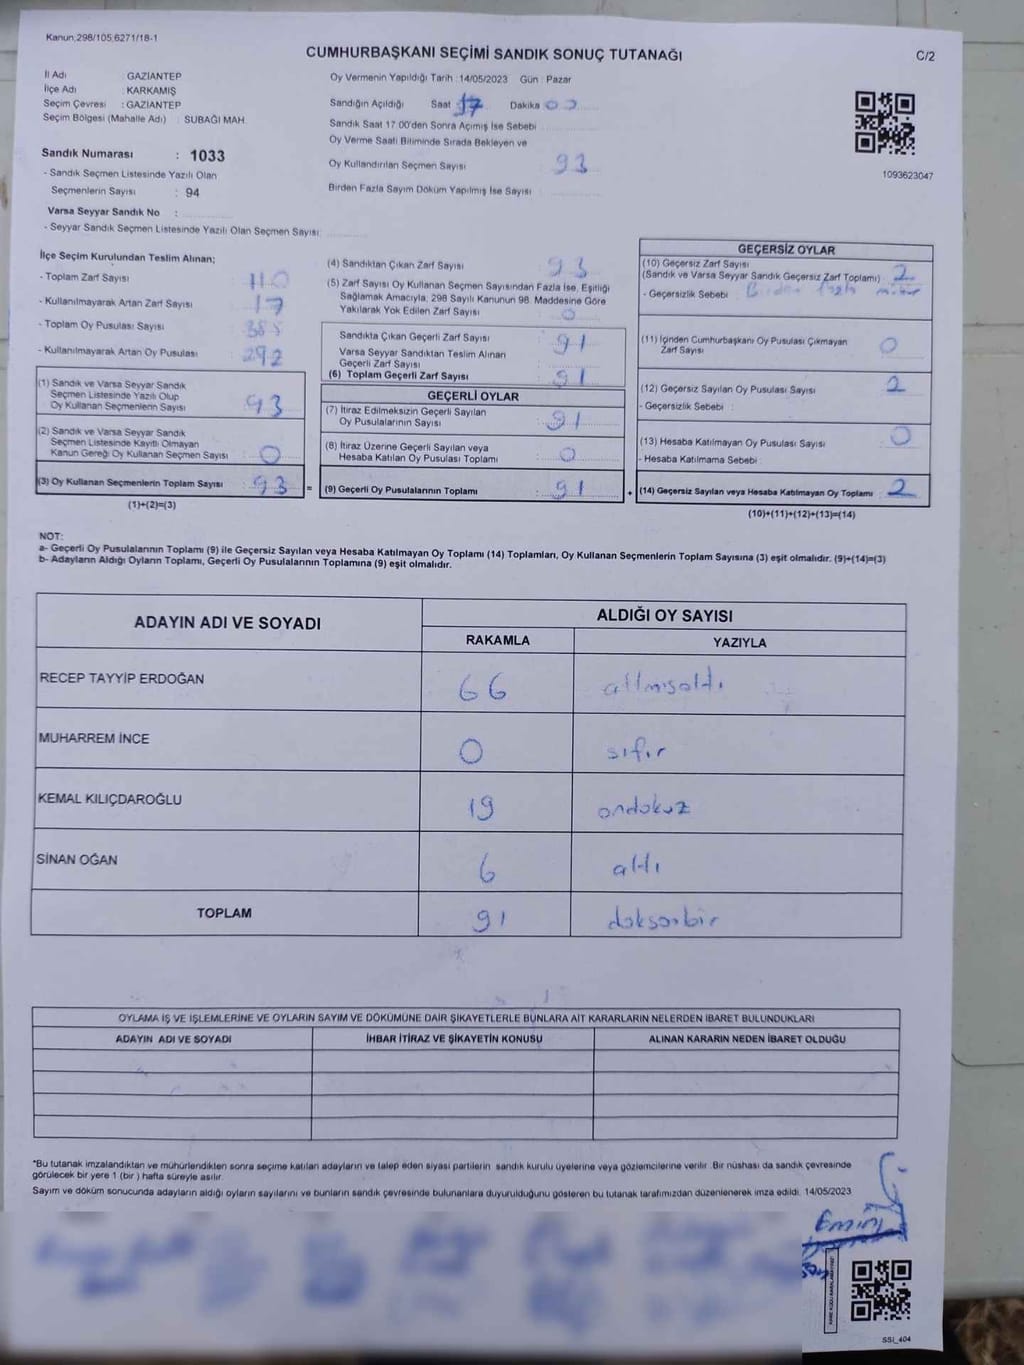 Kanun:298/105,6271/18-1
CUMHURBAŞKANI SEÇİMİ SANDIK SONUÇ TUTANAĞI
C/2
İl Adı : GAZİANTEP
İlçe Adı : KARKAMIŞ
Seçim Çevresi : GAZİANTEP
Seçim Bölgesi (Mahalle Adı) : SUBAĞI MAH.
Sandık Numarası : 1033
- Sandık Seçmen Listesinde Yazılı Olan
Seçmenlerin Sayısı : 94
Varsa Seyyar Sandık No :
- Seyyar Sandık Seçmen Listesinde Yazılı Olan Seçmen Sayısı:
Oy Vermenin Yapıldığı Tarih :14/05/2023 Gün : Pazar
Sandığın Açıldığı Saat 17 Dakika 00
Sandık Saat 17:00'den Sonra Açımış İse Sebebi
Oy Verme Saati Bitiminde Sırada Bekleyen ve
Oy Kullandırılan Seçmen Sayısı 93
Birden Fazla Sayım Döküm Yapılmış İse Sayısı
1093623047
İlçe Seçim Kurulundan Teslim Alınan;
- Toplam Zarf Sayısı 110
- Kullanılmayarak Artan Zarf Sayısı : 17
- Toplam Oy Pusulası Sayısı : 385
- Kullanılmayarak Artan Oy Pusulası : 292
(1) Sandık ve Varsa Seyyar Sandık
Seçmen Listesinde Yazılı Olup
Oy Kullanan Seçmenlerin Sayısı : 93
(2) Sandık ve Varsa Seyyar Sandık
Seçmen Listesinde Kayıtlı Olmayan
Kanun Gereği Oy Kullanan Seçmen Sayısı : 0
(3) Oy Kullanan Seçmenlerin Toplam Sayısı : 93
(1)+(2)=(3)
(4) Sandıktan Çıkan Zarf Sayısı : 93
(5) Zarf Sayısı Oy Kullanan Seçmen Sayısından Fazla İse, Eşitliği
Sağlamak Amacıyla, 298 Sayılı Kanunun 98. Maddesine Göre
Yakılarak Yok Edilen Zarf Sayısı : 0
Sandıkta Çıkan Geçerli Zarf Sayısı : 91
Varsa Seyyar Sandıktan Teslim Alınan
Geçerli Zarf Sayısı :
(6) Toplam Geçerli Zarf Sayısı : 91
GEÇERLİ OYLAR
(7) İtiraz Edilmeksizin Geçerli Sayılan
Oy Pusulalarının Sayısı : 91
(8) İtiraz Üzerine Geçerli Sayılan veya
Hesaba Katılan Oy Pusulası Toplamı : 0
= (9) Geçerli Oy Pusulalarının Toplamı : 91
GEÇERSİZ OYLAR
(10) Geçersiz Zarf Sayısı
(Sandık ve Varsa Seyyar Sandık Geçersiz Zarf Toplamı) : 2
- Geçersizlik Sebebi : Birden fazla mühür
(11) İçinden Cumhurbaşkanı Oy Pusulası Çıkmayan
Zarf Sayısı 0
(12) Geçersiz Sayılan Oy Pusulası Sayısı : 2
- Geçersizlik Sebebi :
(13) Hesaba Katılmayan Oy Pusulası Sayısı : 0
- Hesaba Katılmama Sebebi :
+ (14) Geçersiz Sayılan veya Hesaba Katılmayan Oy Toplamı : 2
(10)+(11)+(12)+(13)=(14)
NOT:
a- Geçerli Oy Pusulalarının Toplamı (9) ile Geçersiz Sayılan veya Hesaba Katılmayan Oy Toplamı (14) Toplamları, Oy Kullanan Seçmenlerin Toplam Sayısına (3) eşit olmalıdır. (9)+(14)=(3)
b- Adayların Aldığı Oyların Toplamı, Geçerli Oy Pusulalarının Toplamına (9) eşit olmalıdır.
ADAYIN ADI VE SOYADI
ALDIĞI OY SAYISI
RAKAMLA YAZIYLA
RECEP TAYYİP ERDOĞAN 66 altmışaltı
MUHARREM İNCE 0 sıfır
KEMAL KILIÇDAROĞLU 19 ondokuz
SİNAN OĞAN 6 altı
TOPLAM 91 doksanbir
OYLAMA İŞ VE İŞLEMLERİNE VE OYLARIN SAYIM VE DÖKÜMÜNE DAİR ŞİKAYETLERLE BUNLARA AİT KARARLARIN NELERDEN İBARET BULUNDUKLARI
ADAYIN ADI VE SOYADI İHBAR İTİRAZ VE ŞİKAYETİN KONUSU ALINAN KARARIN NEDEN İBARET OLDUĞU
*Bu tutanak imzalandıktan ve mühürlendikten sonra seçime katılan adayların ve talep eden siyasi partilerin sandık kurulu üyelerine veya gözlemcilerine verilir. Bir nüshası da sandık çevresinde
görülecek bir yere 1 (bir ) hafta süreyle asılır.
Sayım ve döküm sonucunda adayların aldığı oyların sayılarını ve bunların sandık çevresinde bulunanlara duyurulduğunu gösteren bu tutanak tarafımızdan düzenlenerek imza edildi. 14/05/2023
SSI_404